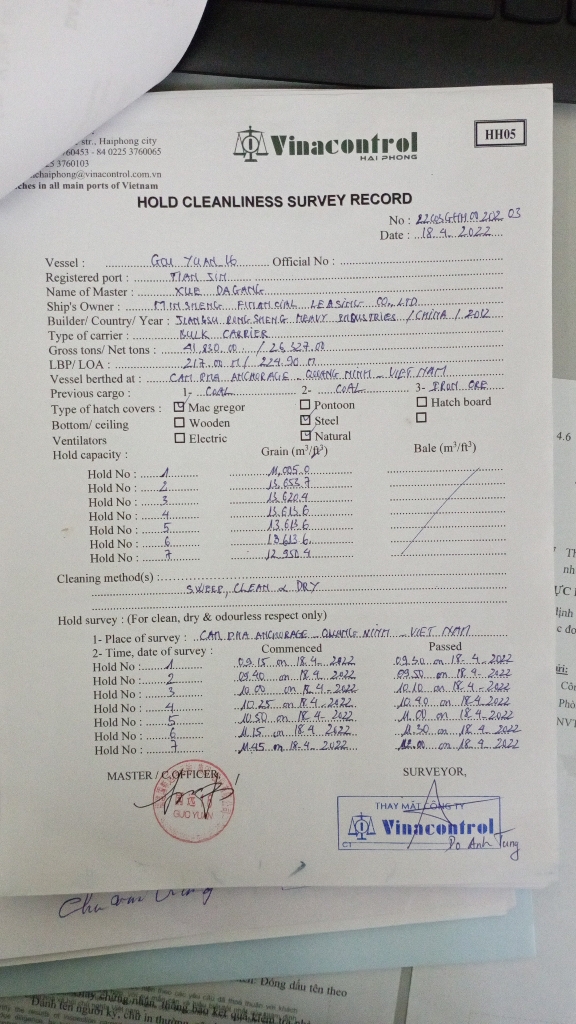 str., Haiphong city
760453 - 84 0225 3760065
3760103
chaiphong@vinacontrol.com.vn
ches in all main ports of Vietnam
Vinacontrol
HAI PHONG
HH05
HOLD CLEANLINESS SURVEY RECORD
No :
Date : 18.4.2022
Vessel : GOU YUAN 16 Official No :
Registered port : TIAN JIN
Name of Master : XUE DAGANG
Ship's Owner : MINSHENG FINANCIAL LEASING CO., LTD
Builder/ Country/ Year : JIANGSU RONGSHENG HEAVY INDUSTRIES / CHINA / 2012
Type of carrier : BULK CARRIER
Gross tons/ Net tons : 41,830.00 / 26,527.00
LBP/ LOA : 217.00 M / 224.90 M
Vessel berthed at : CAM PHA ANCHORAGE - QUANG NINH - VIET NAM
Previous cargo : 1- COAL 2- COAL 3- IRON ORE
Type of hatch covers : Mac gregor Pontoon Hatch board
Bottom/ ceiling Wooden Steel
Ventilators Electric Natural
Hold capacity : Grain (m³/ft³) Bale (m³/ft³)
Hold No : 1 11,005.0
Hold No : 2 13,653.7
Hold No : 3 13,620.4
Hold No : 4 13,613.6
Hold No : 5 13,613.6
Hold No : 6 13,613.6
Hold No : 7 12,950.4
Cleaning method(s) :
SWEEP, CLEAN & DRY
Hold survey : (For clean, dry & odourless respect only)
1- Place of survey : CAM PHA ANCHORAGE - QUANG NINH - VIET NAM
2- Time, date of survey : Commenced Passed
Hold No : 1 09.15 on 18.4.2022 09.30 on 18.4.2022
Hold No : 2 09.40 on 18.4.2022 09.50 on 18.4.2022
Hold No : 3 10.00 on 18.4.2022 10.10 on 18.4.2022
Hold No : 4 10.25 on 18.4.2022 10.40 on 18.4.2022
Hold No : 5 10.50 on 18.4.2022 11.00 on 18.4.2022
Hold No : 6 11.15 on 18.4.2022 11.30 on 18.4.2022
Hold No : 7 11.45 on 18.4.2022 12.00 on 18.4.2022
MASTER / C.OFFICER, SURVEYOR,
GUO YUAN
THAY MẶT CÔNG TY
Vinacontrol
CT
Do Anh Tung
4.6
Dóng dấu tên theo